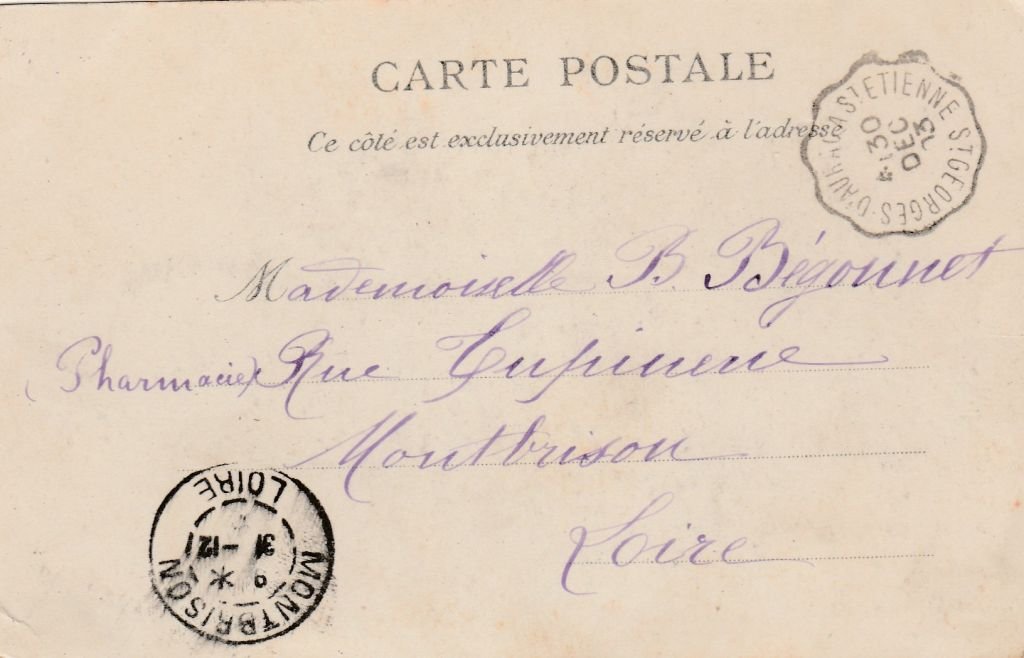 CARTE POSTALE
Ce côté est exclusivement réservé à l'adresse
ST ETIENNE ST GEORGES-D'AURAC
30
DEC
13
Mademoiselle B. Bégonnet
(Pharmacie) Rue Tupinerie
Montbrison
Loire
MONTBRISON
LOIRE
31 - 12